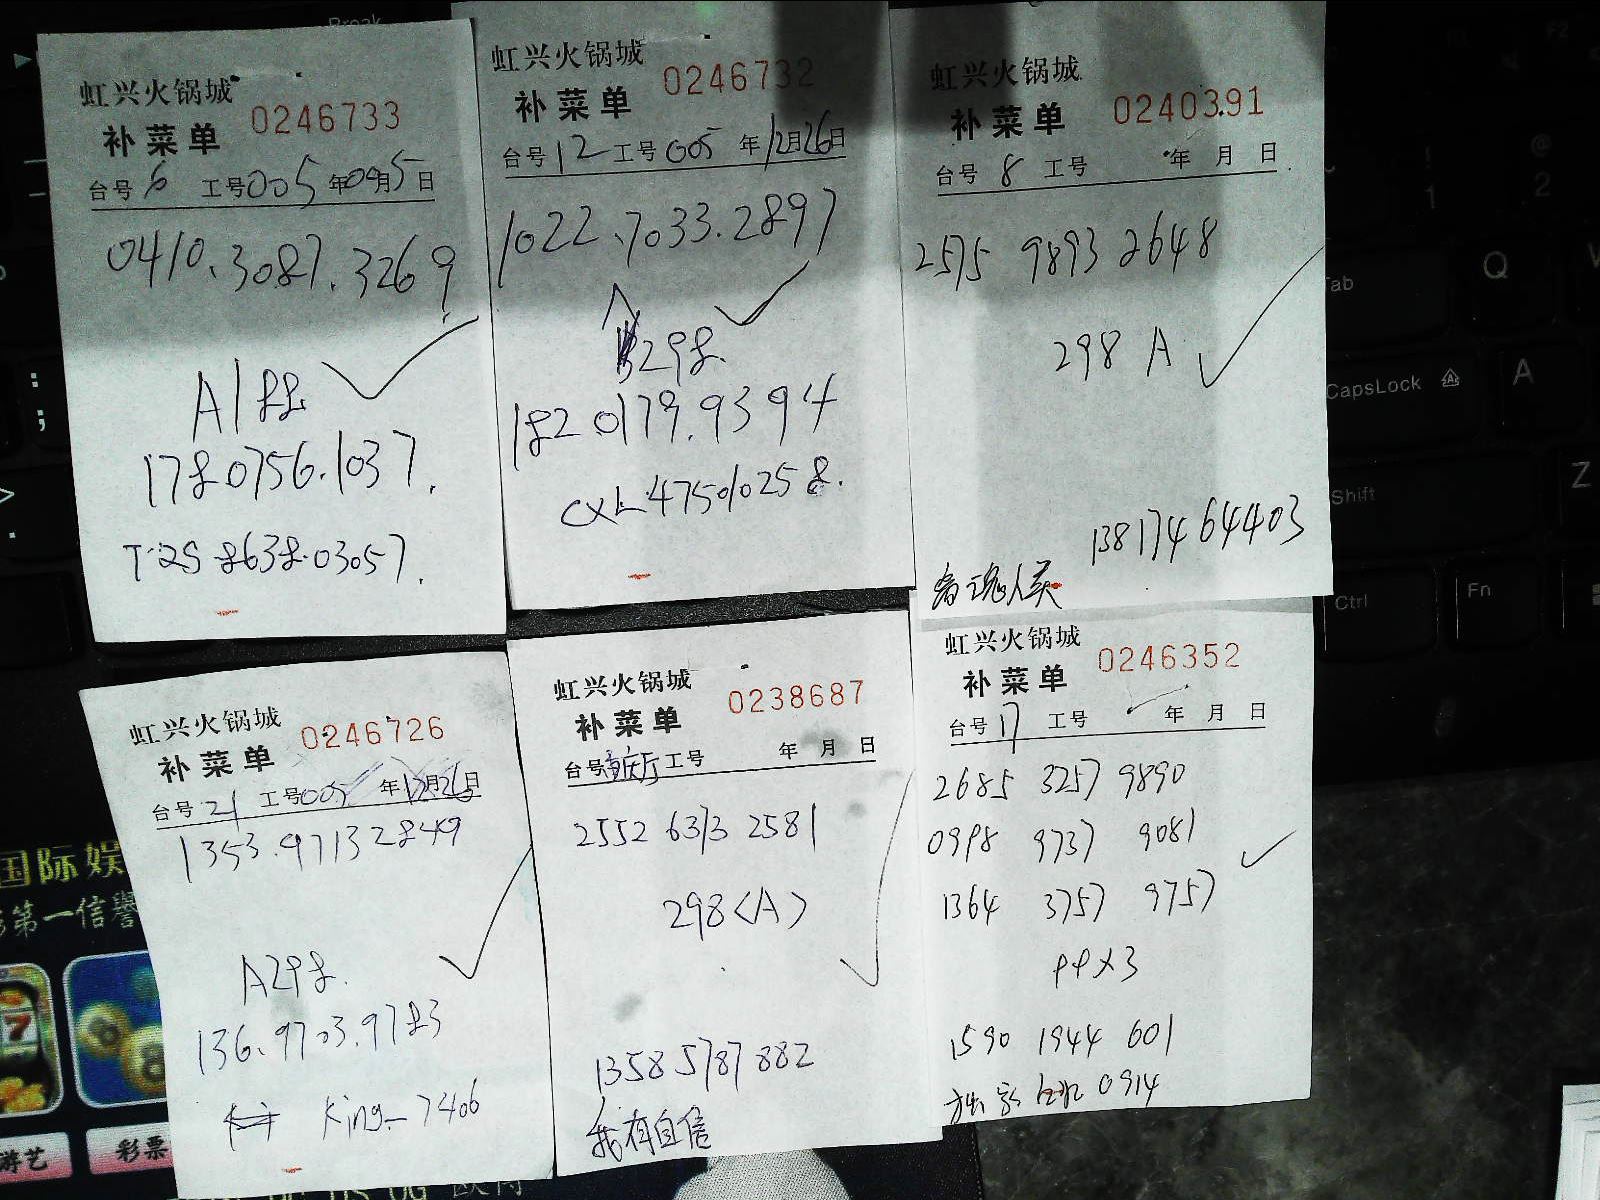 虹兴火锅城
补菜单 0246733
台号 6 工号005 年09月5日
0410.3087.3269
A188
178 0756.1037.
T.2S 8638.03057.
虹兴火锅城
补菜单 0246732
台号 12 工号 005 年12月26日
1022.7033.2897
298.
182 0179.9394
CXL 475010258.
虹兴火锅城
补菜单 0240391
台号 8 工号 年 月 日
2575 9893 2648
298 A
13817464403
虹兴火锅城
补菜单 0246726
台号 21 工号005 年12月26日
1353.97132849
A298.
136.9703.9783
King-7406
虹兴火锅城
补菜单 0238687
台号重庆厅工号 年 月 日
2552 6313 2581
298<A>
13585787882
我有自信
虹兴火锅城
补菜单 0246352
台号 17 工号 年 月 日
2685 3257 9890
0998 9737 9081
1364 3757 9757
99×3
1590 1944 601
0914
Break
Tab
Q
CapsLock
A
Shift
Z
Ctrl
Fn
国际娱
第一信誉
游艺
彩票